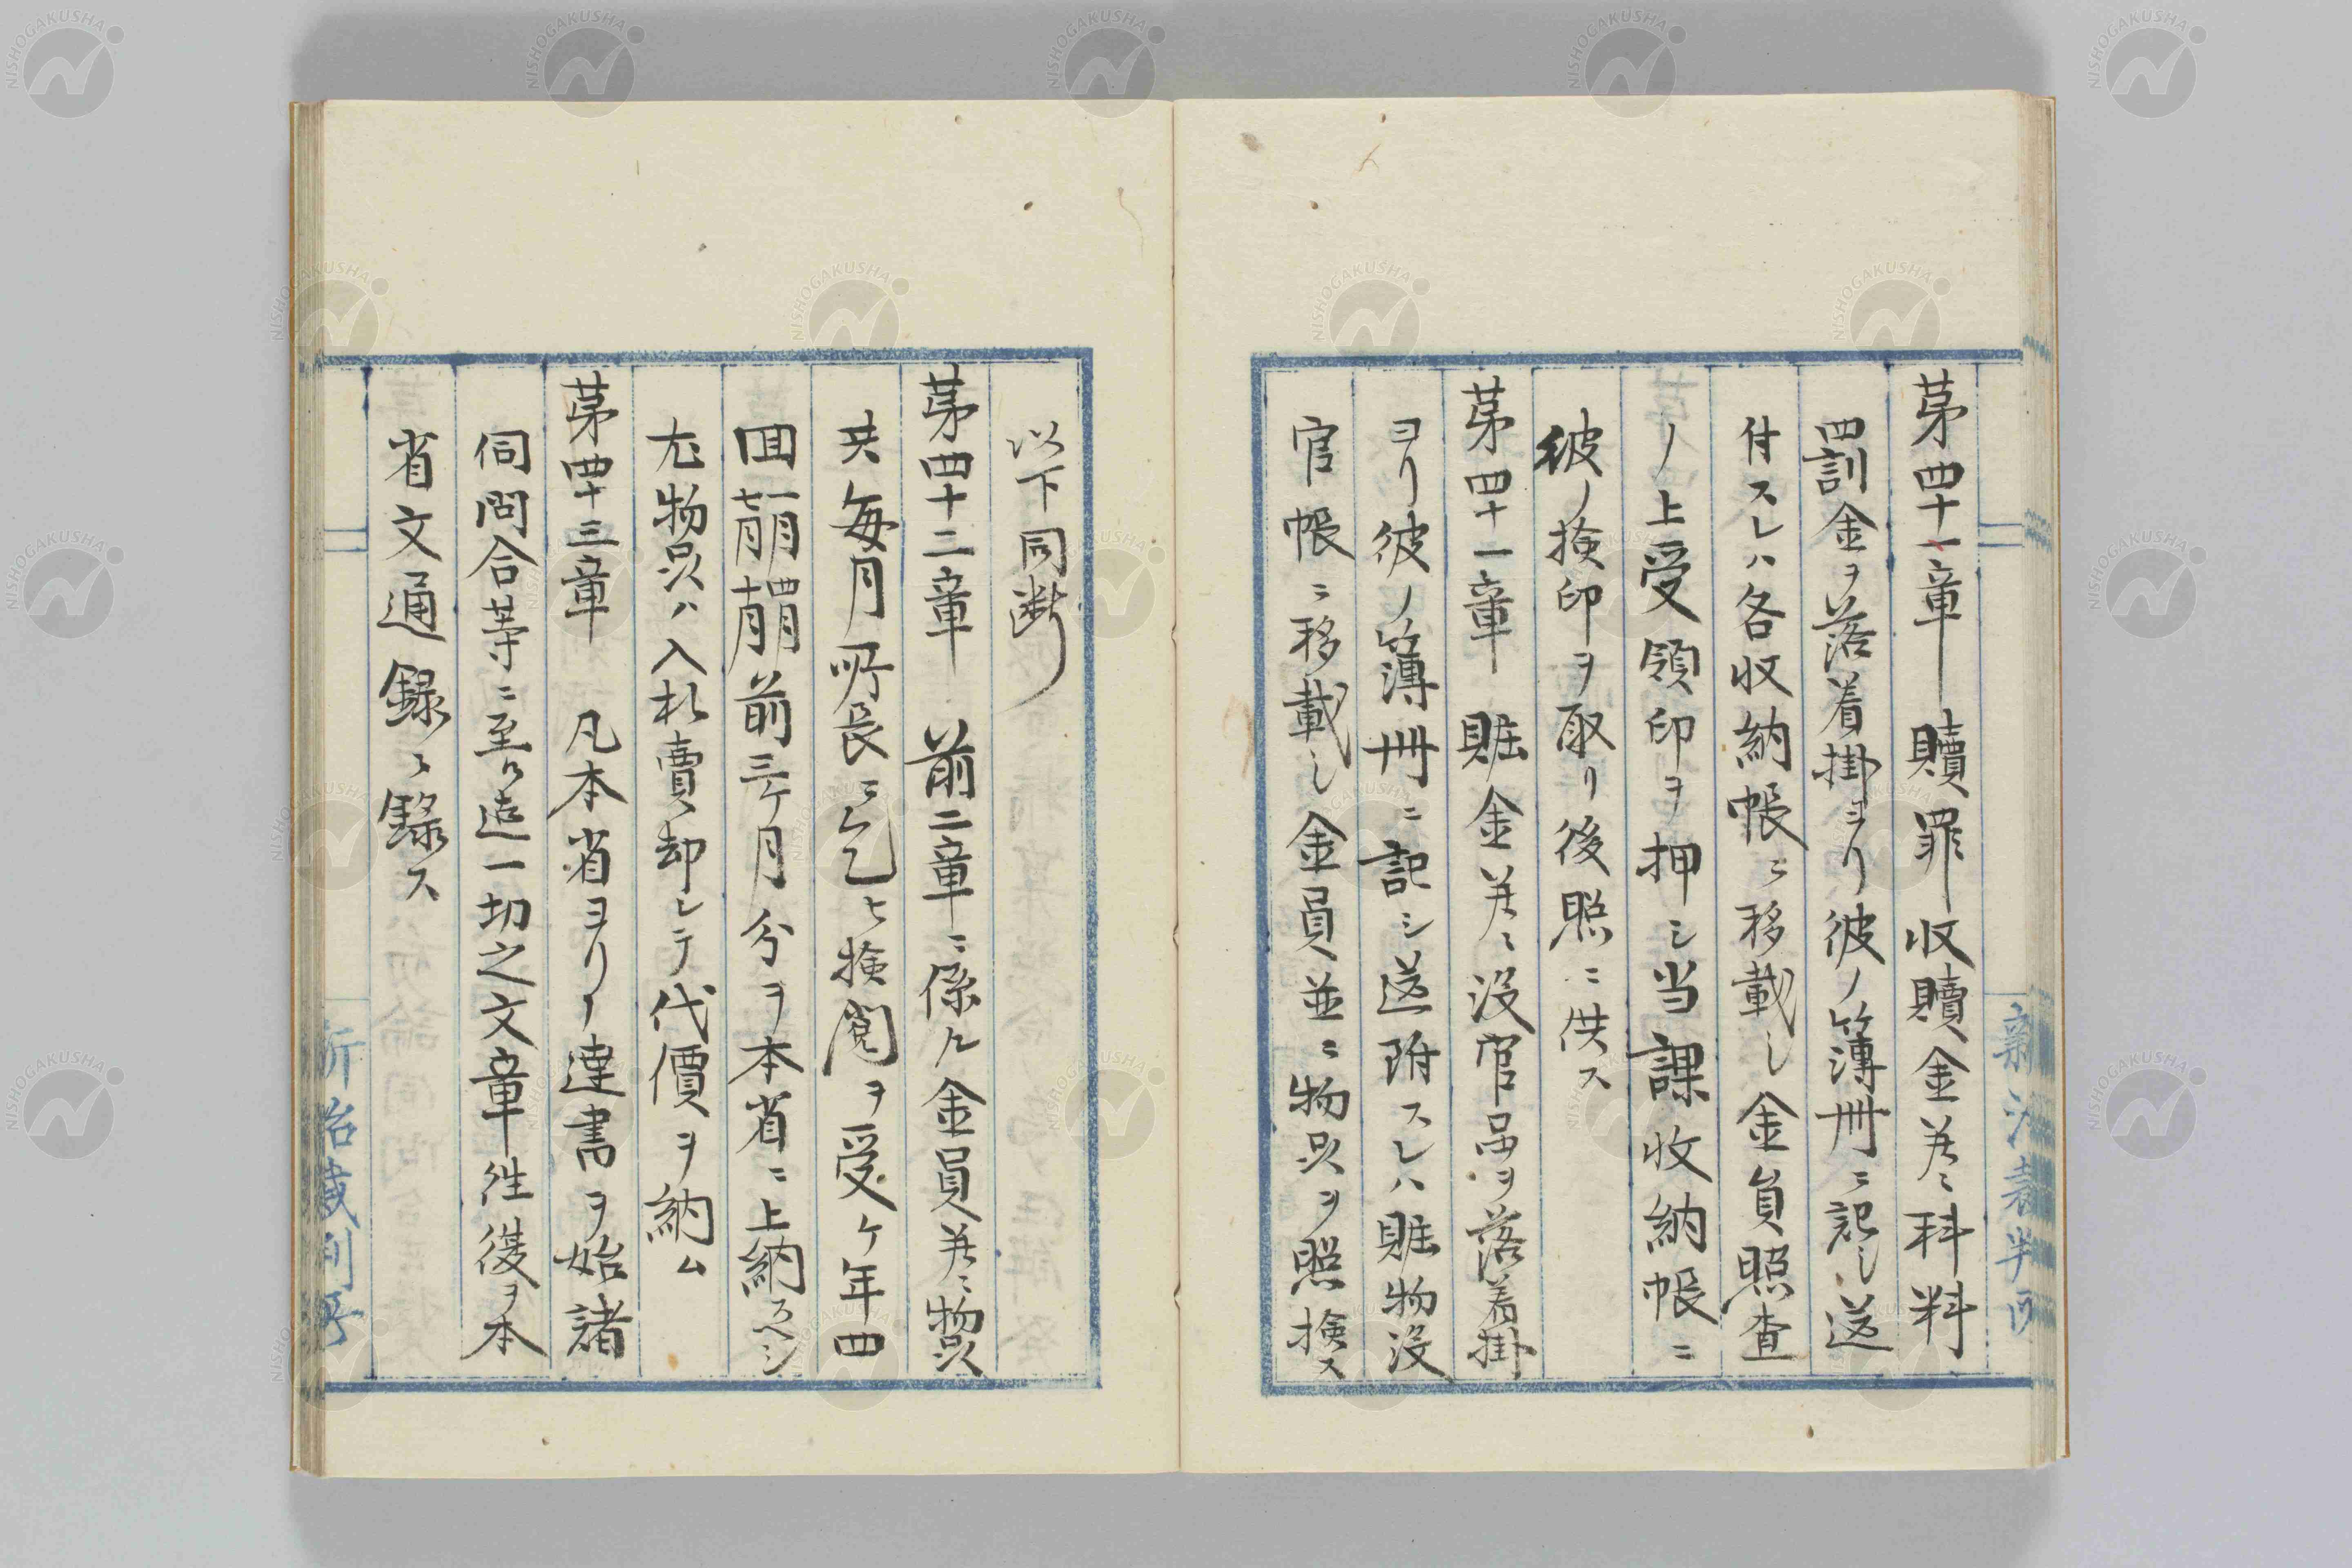 第四十一章　贖罪収贖金并ニ科料
罰金ヲ落着掛ヨリ彼ノ簿冊ニ記シ送
付スレハ各収納帳ニ移載シ金員照査
ノ上受領印ヲ押シ当課収納帳ニ
彼ノ検印ヲ取リ後照ニ供ス
第四十一章　賍金并ニ没官品ヲ落着掛
ヨリ彼ノ簿冊ニ記シ送附スレハ賍物没
官帳ニ移載シ金員並ニ物品ヲ照検ス
以下同断
第四十二章　前二章ニ係ル金員并ニ物品
共毎月所長ニ乞ヒ検閲ヲ受ケ年四
回一月四月七月十月前三ケ月分ヲ本省ニ上納スヘシ
尤物品ハ入札賣却シテ代價ヲ納ム
第四十三章　凡本省ヨリノ達書ヲ始諸
伺問合等ニ至ル迄一切之文章往復ヲ本
省文通録ニ録ス
NISHOGAKUSHA